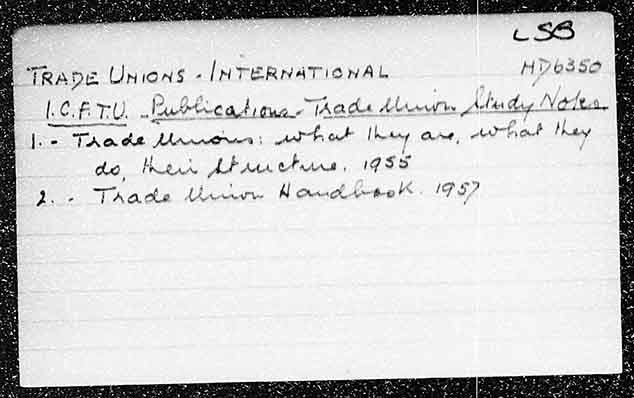 LSB
TRADE UNIONS - INTERNATIONAL HD6350
I.C.F.T.U. Publications - Trade Union Study Notes
1. - Trade Unions: what they are, what they
do, their structure. 1955
2. - Trade Union Handbook. 1957